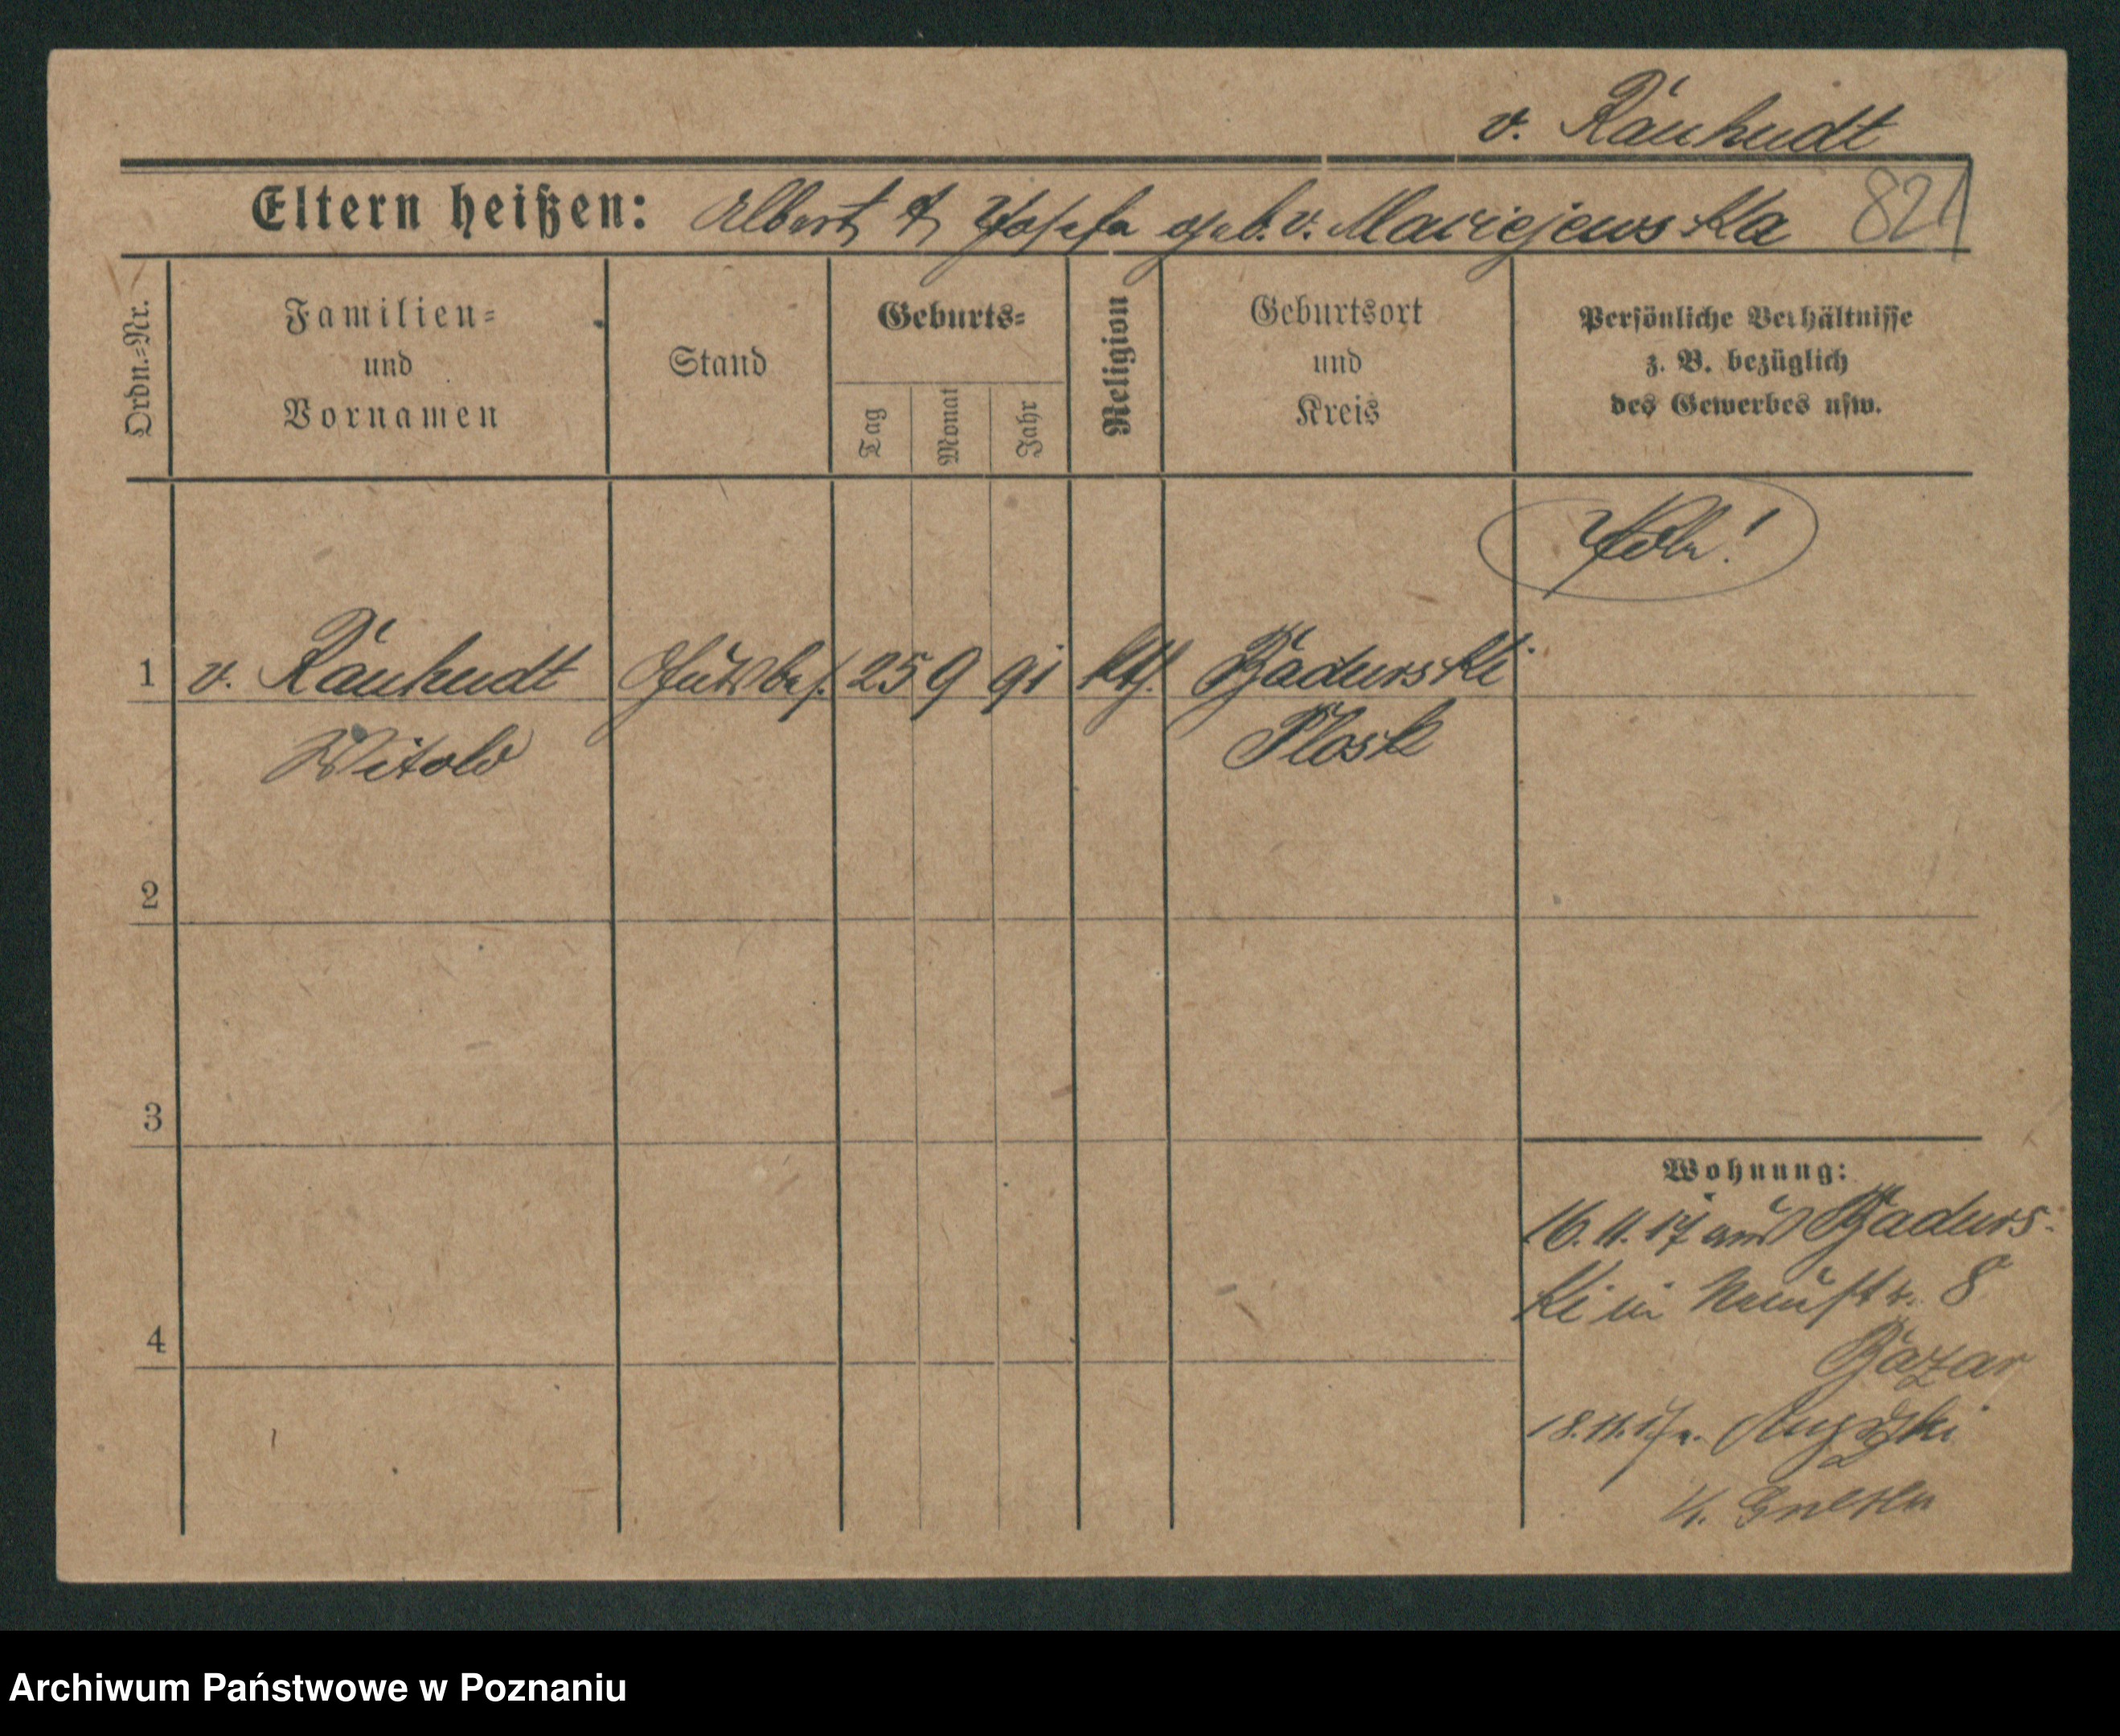 v. Rauhudt
Eltern heißen: Albert & Josefa geb. v. Maciejewska 821
Ordn.=Nr.
Familien=
und
Vornamen
Stand
Geburts=
Tag
Monat
Jahr
Religion
Geburtsort
und
Kreis
Persönliche Verhältnisse
z. B. bezüglich
des Gewerbes usw.
Pole!
1 v. Rauhudt Gutsbes. 25 9 91 kth. Badurski
Witold Plosk
2
3
4
Wohnung:
16.11.17 aus Badurs-
ki in Neustr. 8
Bazar
18.11.17 n.
Archiwum Państwowe w Poznaniu